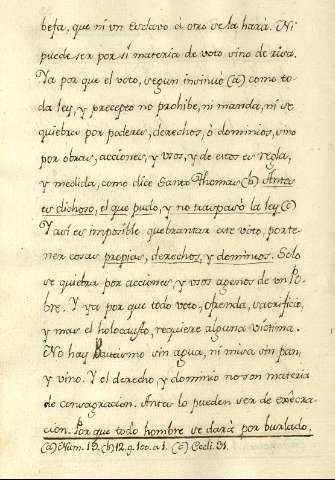 befa, que ni vn Esclavo à otro se la hará. Ni
puede ser por sí materia de voto sino de risa.
Ya por que el voto, segun insinuè (a) como to-
da ley, y precepto no prohibe, ni manda, ni se
quiebra por poderes, derechos, ò dominios, sino
por obras, acciones, y vsos, y de estos es regla,
y medida, como dice Santo Thomas (b) Antes
es dichoso, el que pudo, y no traspasò la ley (c)
Y assi es imposible quebrantar este voto, por te-
ner cosas propias, derechos, y dominios. Solo
se quiebra por acciones, y vsos agenos de vn Po-
bre. Y ya por que todo voto, ofrenda, sacrificio,
y mas el holocausto, requiere alguna victima.
No hay Bautismo sin agua, ni misa sin pan,
y vino. Y el derecho, y dominio no son materia
de consagracion. Antes lo pueden ser de exêcra-
cion. Por que todo hombre se darà por burlado,
(a) Num. 15. (b) 12. q. 100. a 1. (c) Ecdi. 31.